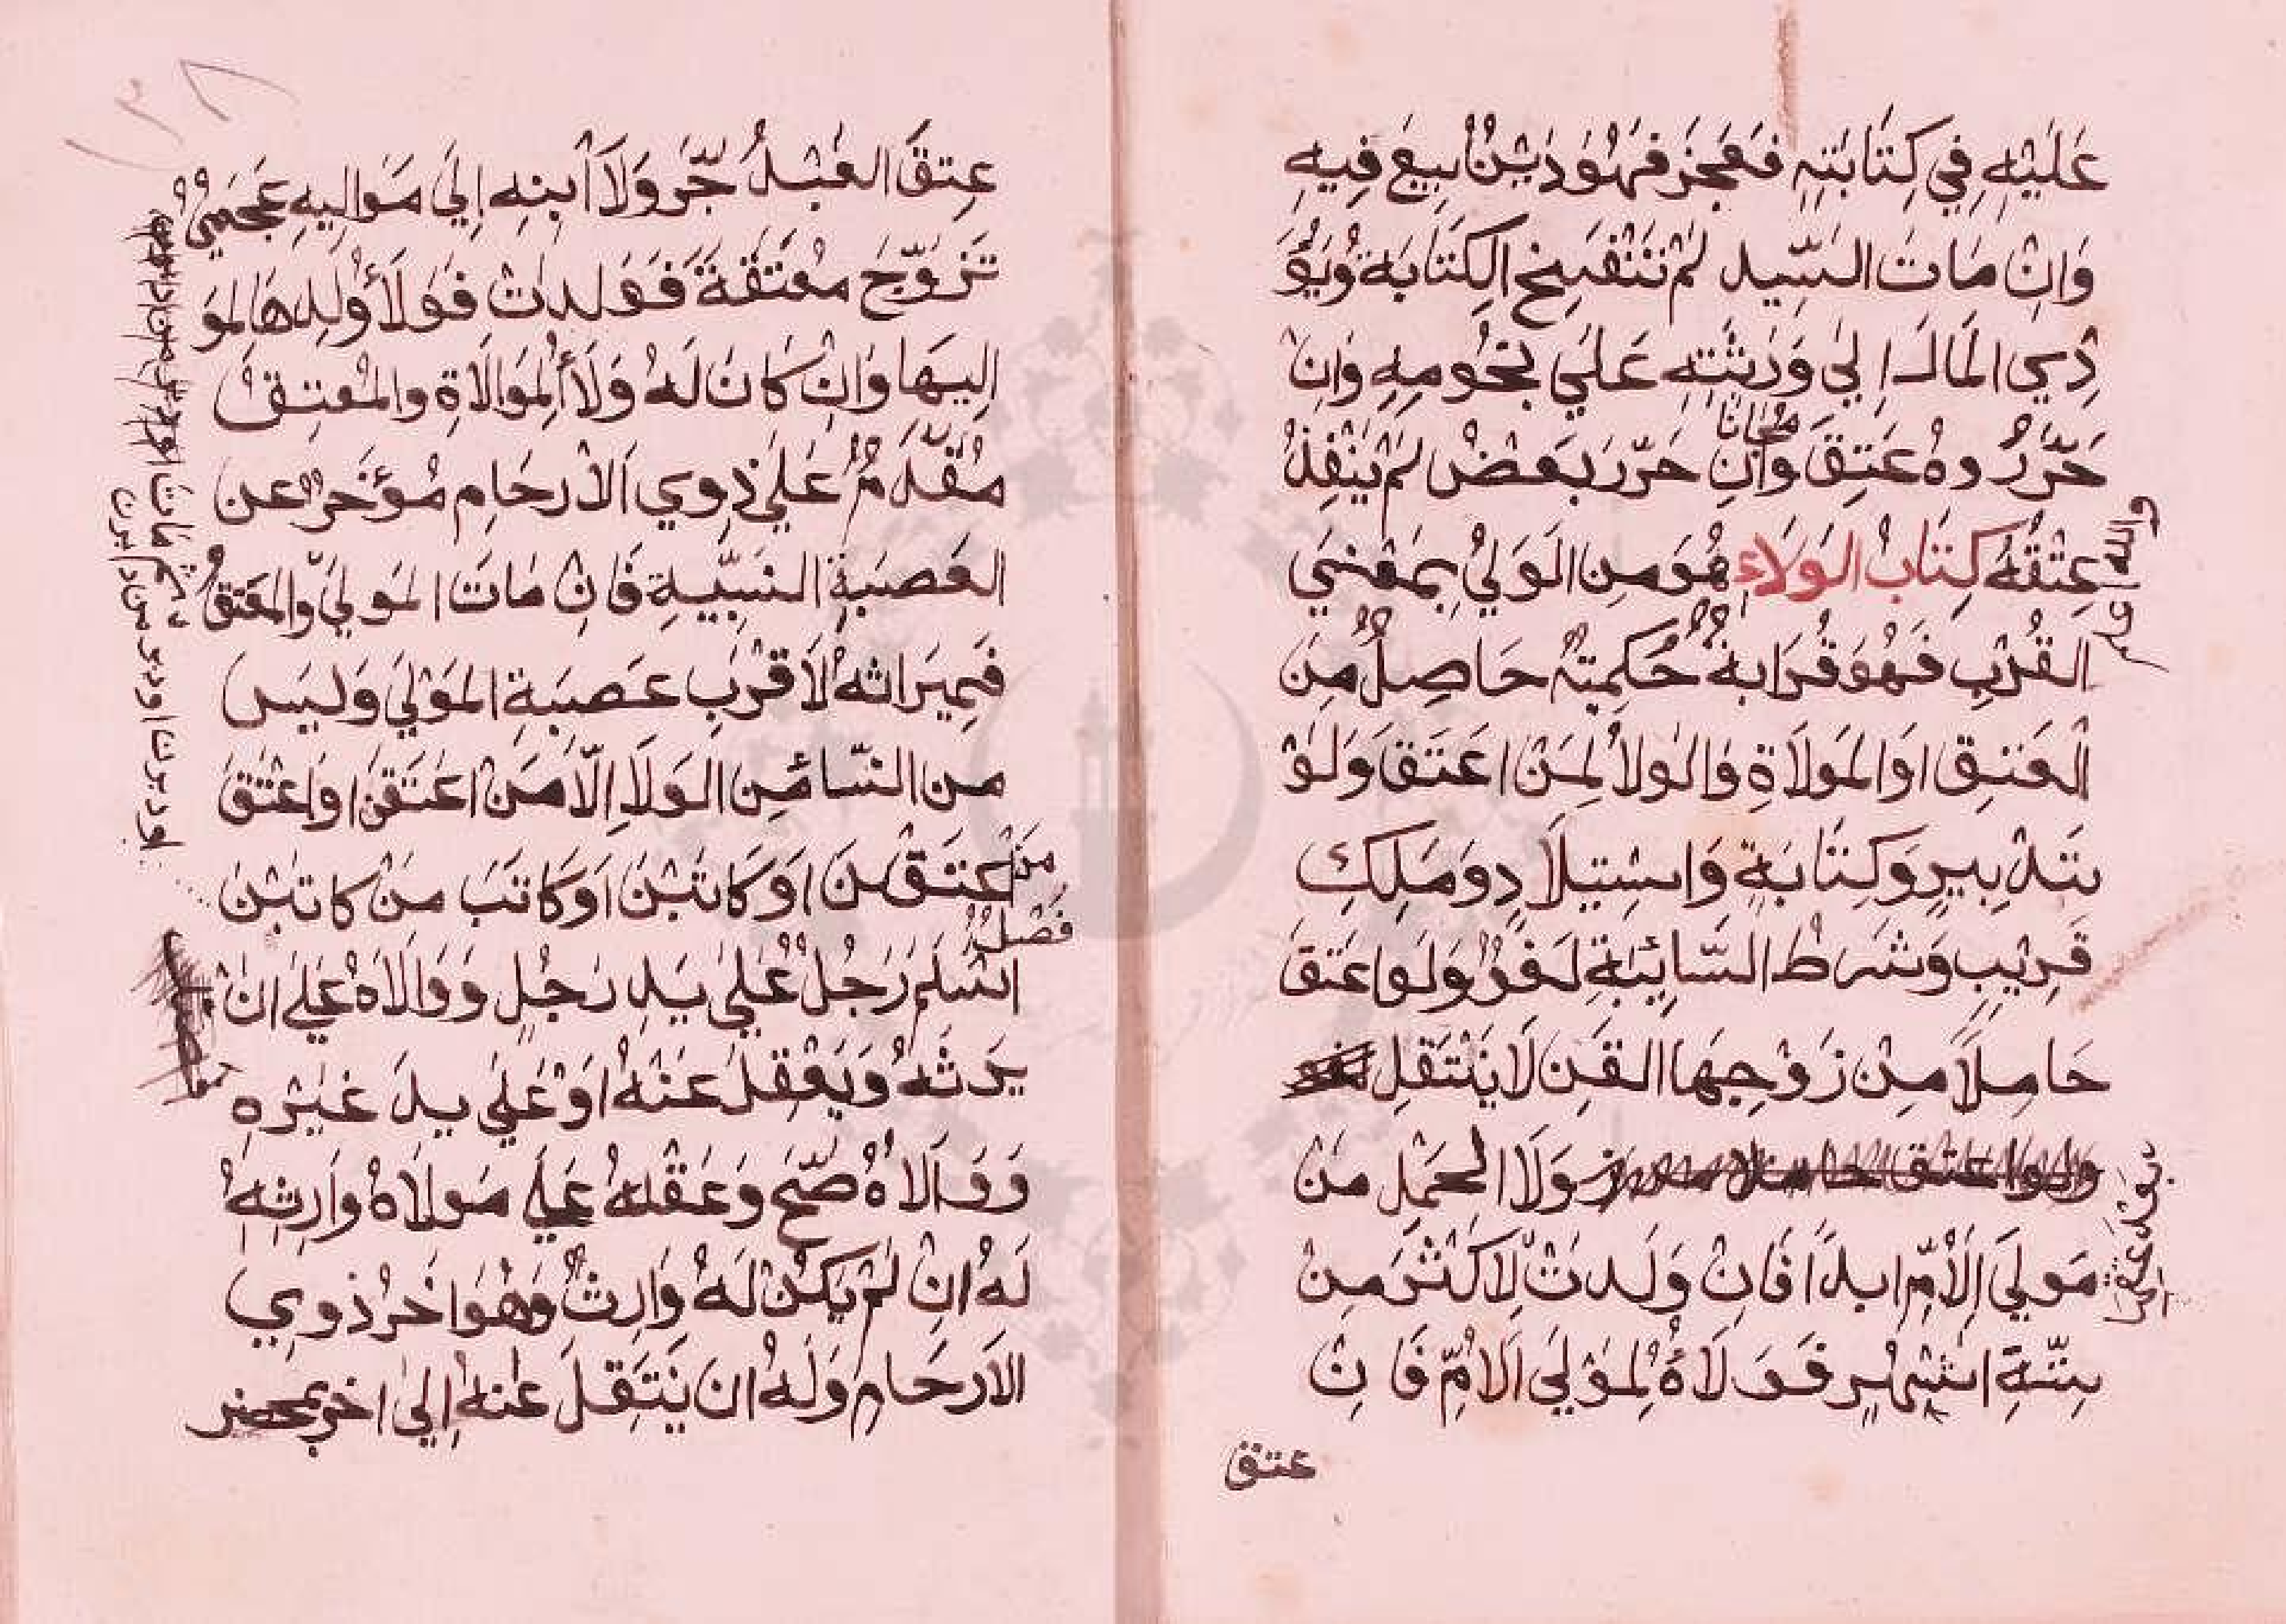 عَلَيْهِ فِي كِتَابَتِهِ فَعَجَزَ فَهُوَ دَيْنٌ بِيعَ فِيهِ
وَاِنْ مَاتَ السَّيِد لَمْ تَنْفَسِخِ الكِتَابَة وَيُؤَ
دِي المَالَ اِلى وَرَثَتِهِ عَلَي نُجُومِهِ وَاِنْ
حَرَّرُوهُ عَتِقَ مَجَانًا وَاِن حَرّرَ بَعَضٌ لَمْ يَنْفِذْ
عِتْقُهُ كِتَابُ الوَلَاءِ هُوَ مِنَ الوَلْيُ بِمَعْنَي
والله اعلم
القُرْبِ فَهُوَ قُرَابةٌ حُكمِيّةٌ حَاصِلٌ مِنَ
العَتِق اوَالمَولَاةِ وَالوَلاُ لِمَنْ اعَتَقَ وَلَوْ
بتَدْبِيرٍ وَكِتَابَةٍ وَاسْتِيلَادٍ وَمَلِكِ
قَرِيْبٍ وَشَرَطُ السَّايِبَةِ لَغوٌ وَلَو اعَتَقَ
حَامِلاً مِنْ زَوْجِهَا القَنِ لَا يَنْتَقِل
وَلَا الحَمْلِ مَنْ
مَولَيَ اِلاُمِّ ابدًا فَاِنْ وَلَدتْ لِاَكثَرَ مِنْ
سِتّةِ اشْهُرٍ فَوَلَاهُ لِمَوْلَي الاُمِّ فَاِنْ
عتق
عِتقَ العَبْدُ جّرَ وَلَاَ اَبنِهِ اِلَي مَوَالِيهِ عَجَمِيٌ
تَزَوّجَ مُعْتَقَةً فَوَلدتْ فَوَلَأُ وَلِدهَا لِمَوَ
الِيهَا وَاِنْ كَانَ لَهُ وَلَأُ المُوَالَاةِ والمُعْتِقُ
مُقَدَّمٌ عَلَي ذِوي الاَرحَامِ مُؤخَرٌ عن
العَصَبَةِ النسَبِّيةِ فَاِنْ مَاتَ المَولَيّ وَالمُعَتقُ
فَمِيَراثهُ لاَقْرَبِ عَصَبَةِ المَوْلَي وَلَيسَ
مِن النسّائِ مِن الوَلَا اِلّا مَن اعَتَقنَ اوَاعْتَقَ
مَن
اعتَقْنَ اوَكَاتبْنَ اوَكَاتَبَ مِنْ كَاتبْنَ
فَصَلٌ
اسْلَمَ رَجُلٌ عَلَي يَدِ رَجُلٍ وَوَالَاهُ عَلَي انْ
يَرثهُ وَيَعْقِلَ عَنْهُ اوَعَلَي يدِ غَيْرِهِ
وَوَالاهُ صّحَ وَعَقْلهُ عَلَي مَولَاهُ وَارثِهُ
لَهُ اِنْ لَم يَكنْ لَهُ وَارِثٌ وَهُوَ اخَرُ ذوِي
الاَرحَامِ وَلَهُ ان يَنتَقِلَ عَنهُ اِلَى اخر بمحضر